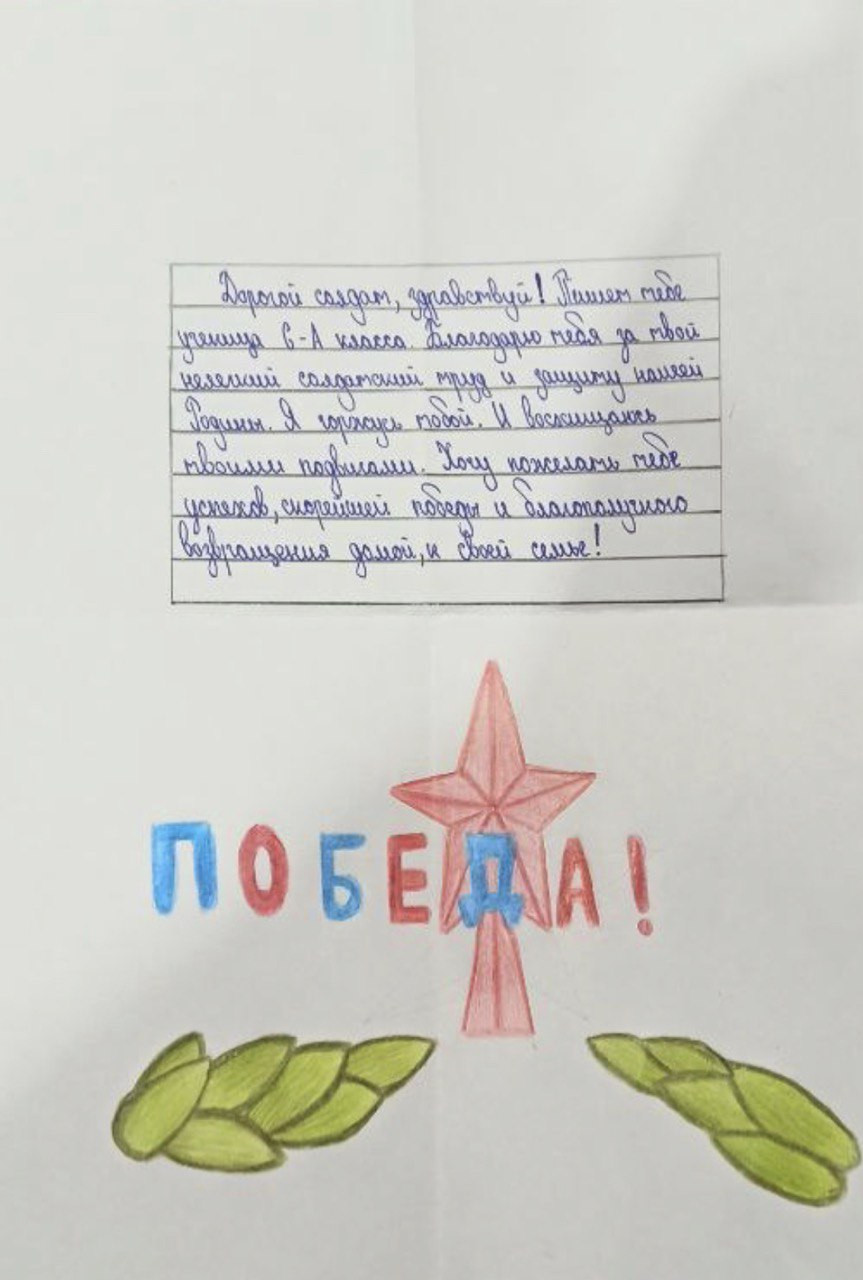 Дорогой солдат, здравствуй! Пишет тебе
ученица 6-А класса. Благодарю тебя за твой
нелегкий солдатский труд и защиту нашей
Родины. Я горжусь тобой. И восхищаюсь
твоими подвигами. Хочу пожелать тебе
успехов, скорейшей победы и благополучного
возвращения домой, к своей семье!
ПОБЕДА!